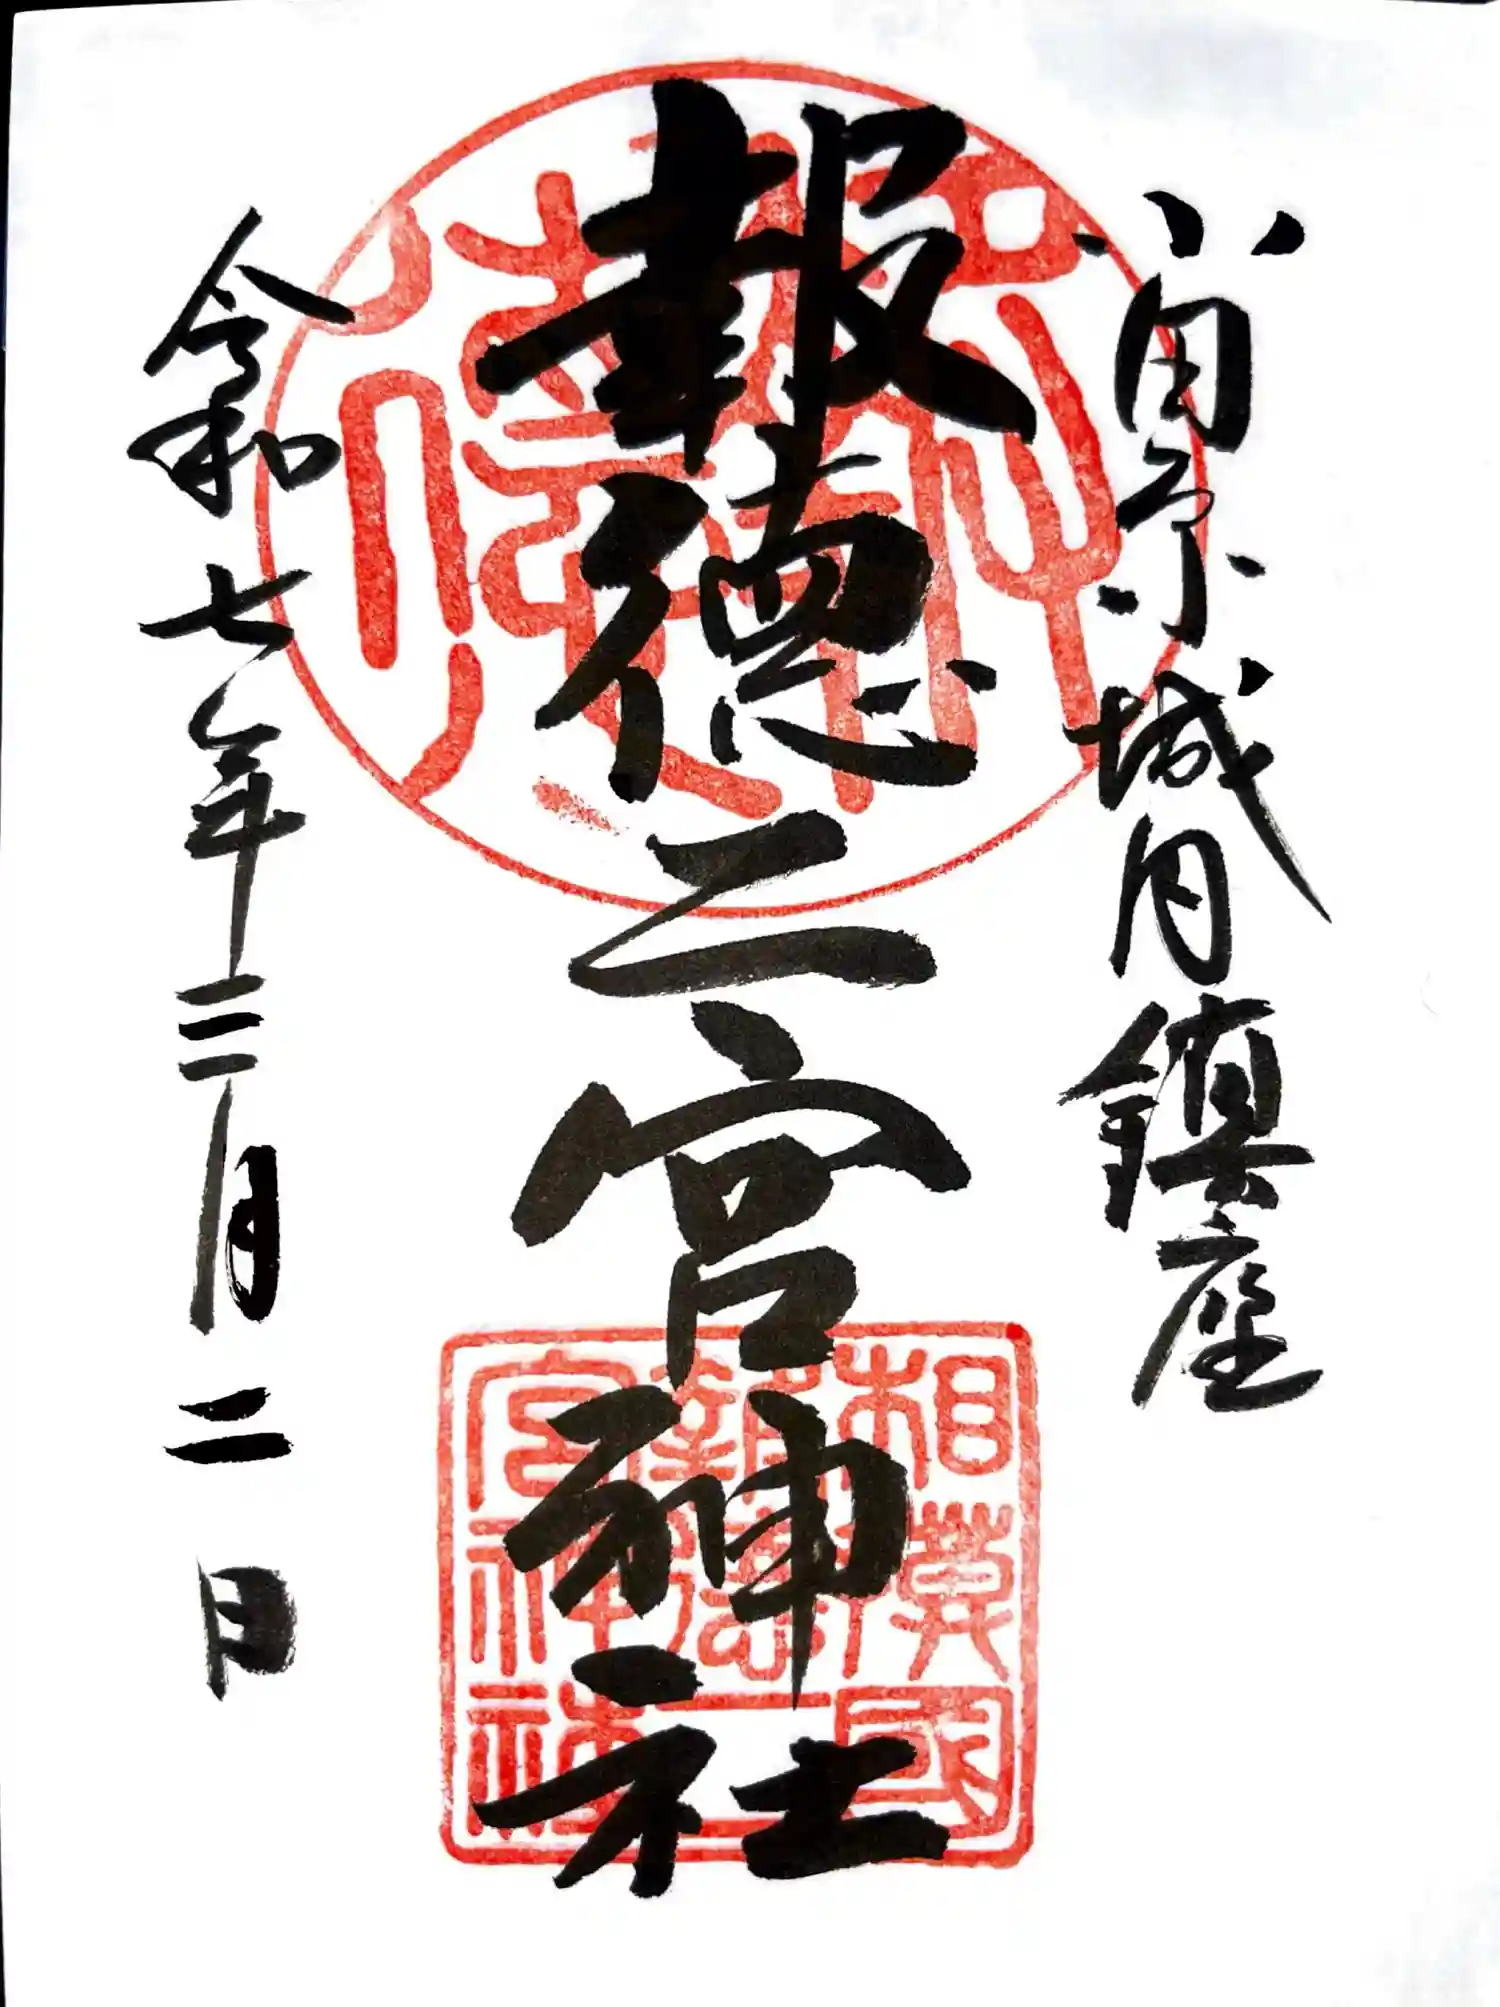 小田原城内鎮座
報徳二宮神社
相模國
報徳二
宮神社
令和七年三月二日